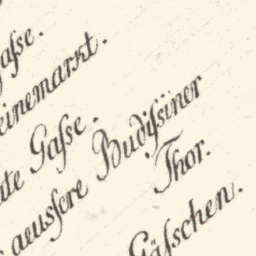 Gaſse.
einemarkt.
Gaſse.
aeusſere Budiſsiner
Thor.
Gäſschen.